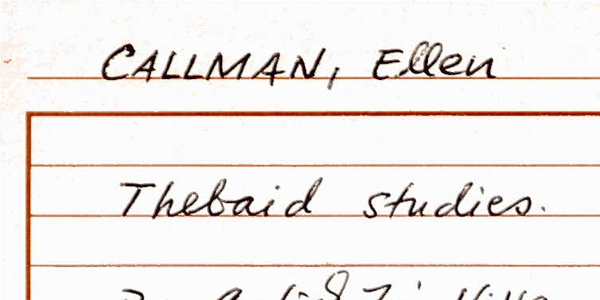 CALLMAN, Ellen
Thebaid studies.